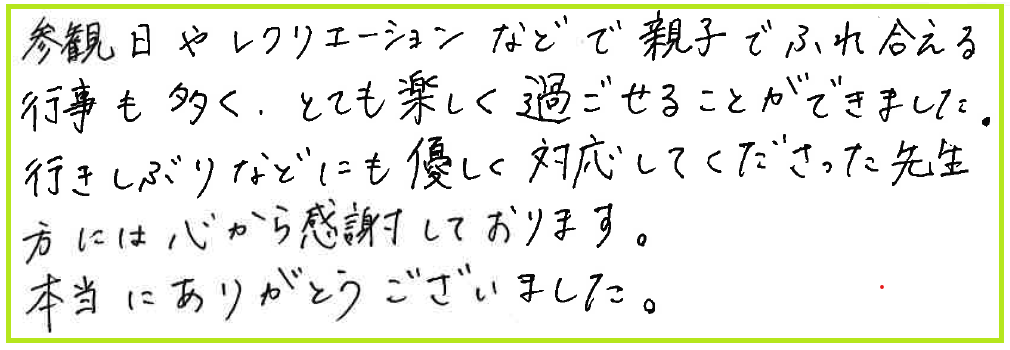 参観日やレクリエーションなどで親子でふれ合える
行事も多く、とても楽しく過ごせることができました。
行きしぶりなどにも優しく対応してくださった先生
方には心から感謝しております。
本当にありがとうございました。